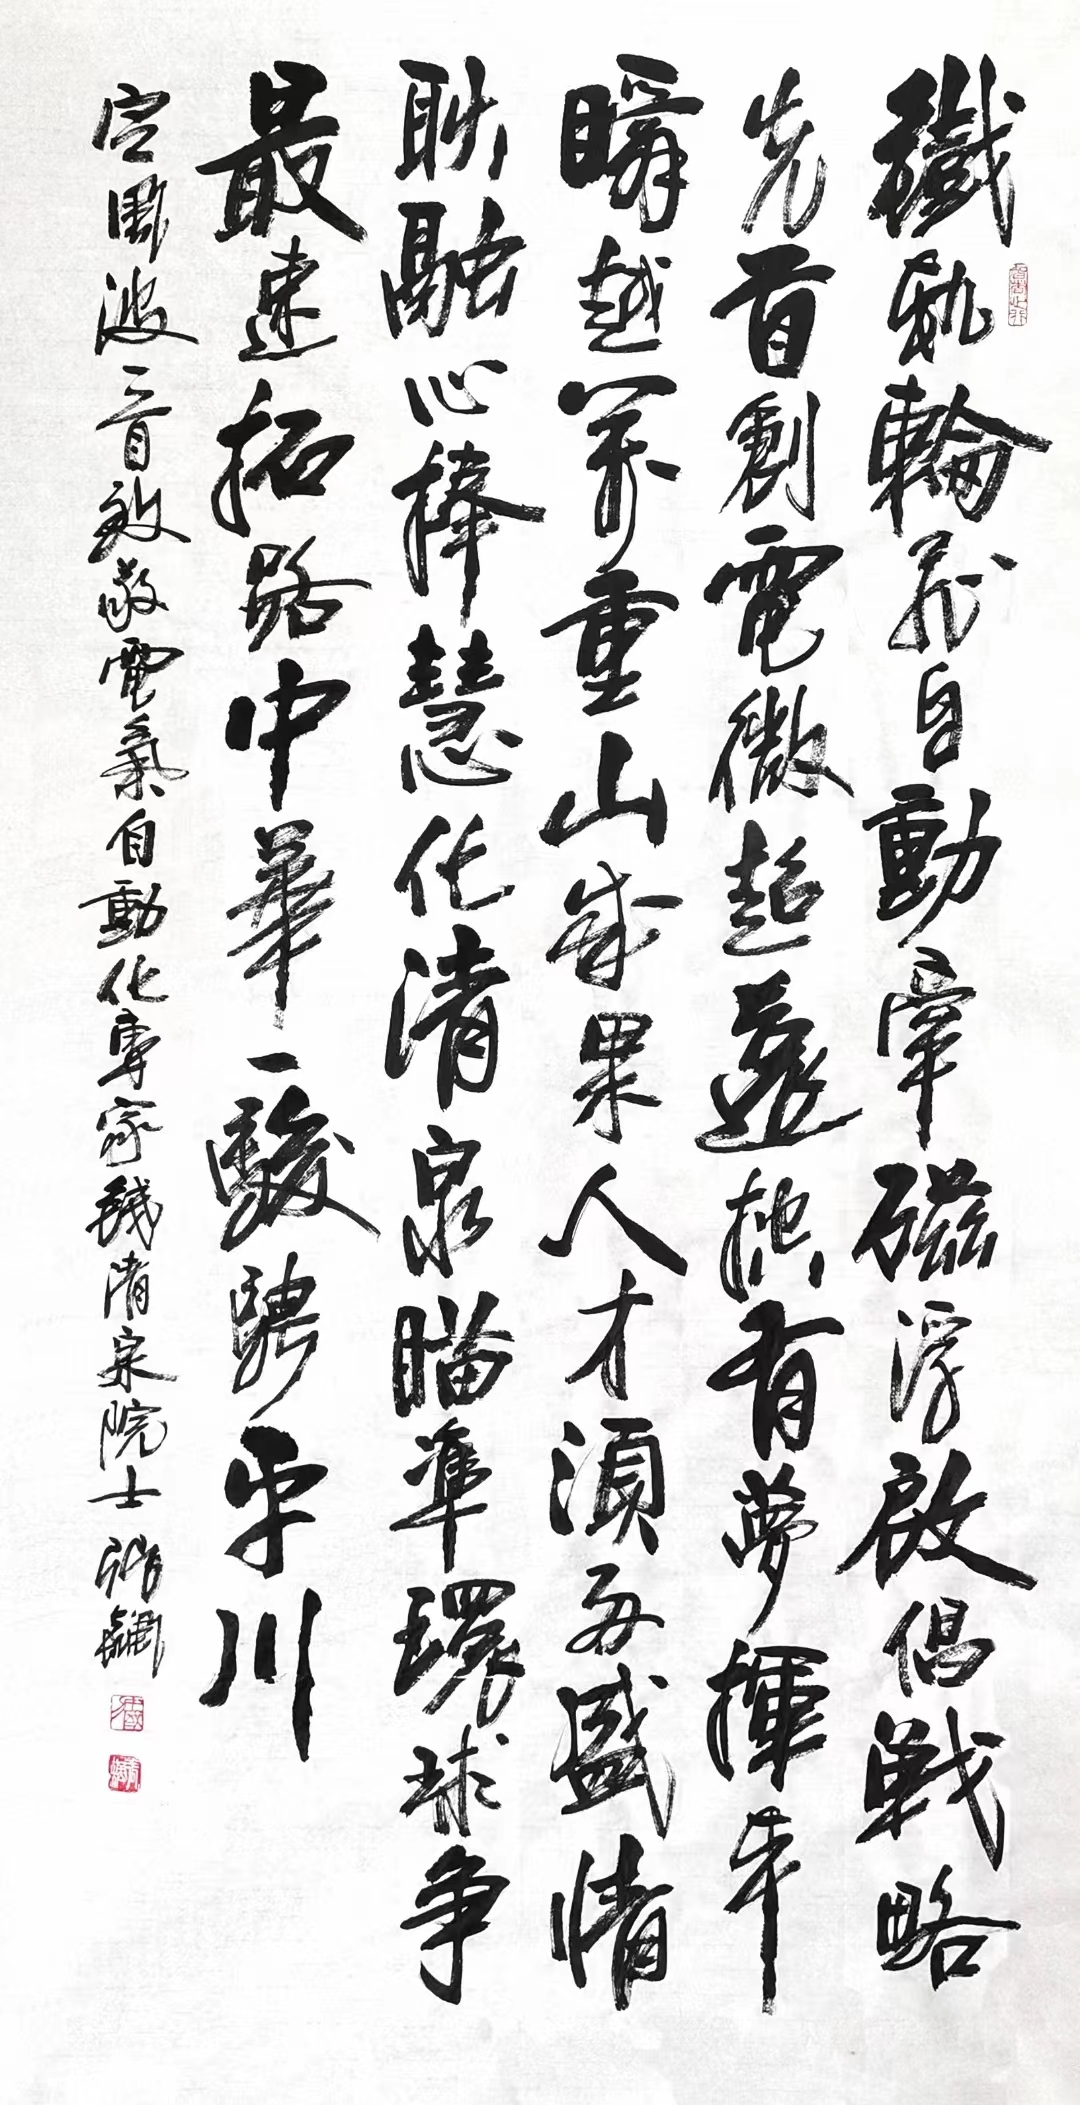 鐵軌輪飛自動牽磁浮啟倡戰略
先首創電微超遠控有夢揮年
瞬越万重山成果人才須每盛情
耿融心棒慧化清泉瞄準環球爭
最速拓路中華一駿騁平川
定風波一首致敬電氣自動化專家錢清泉院士